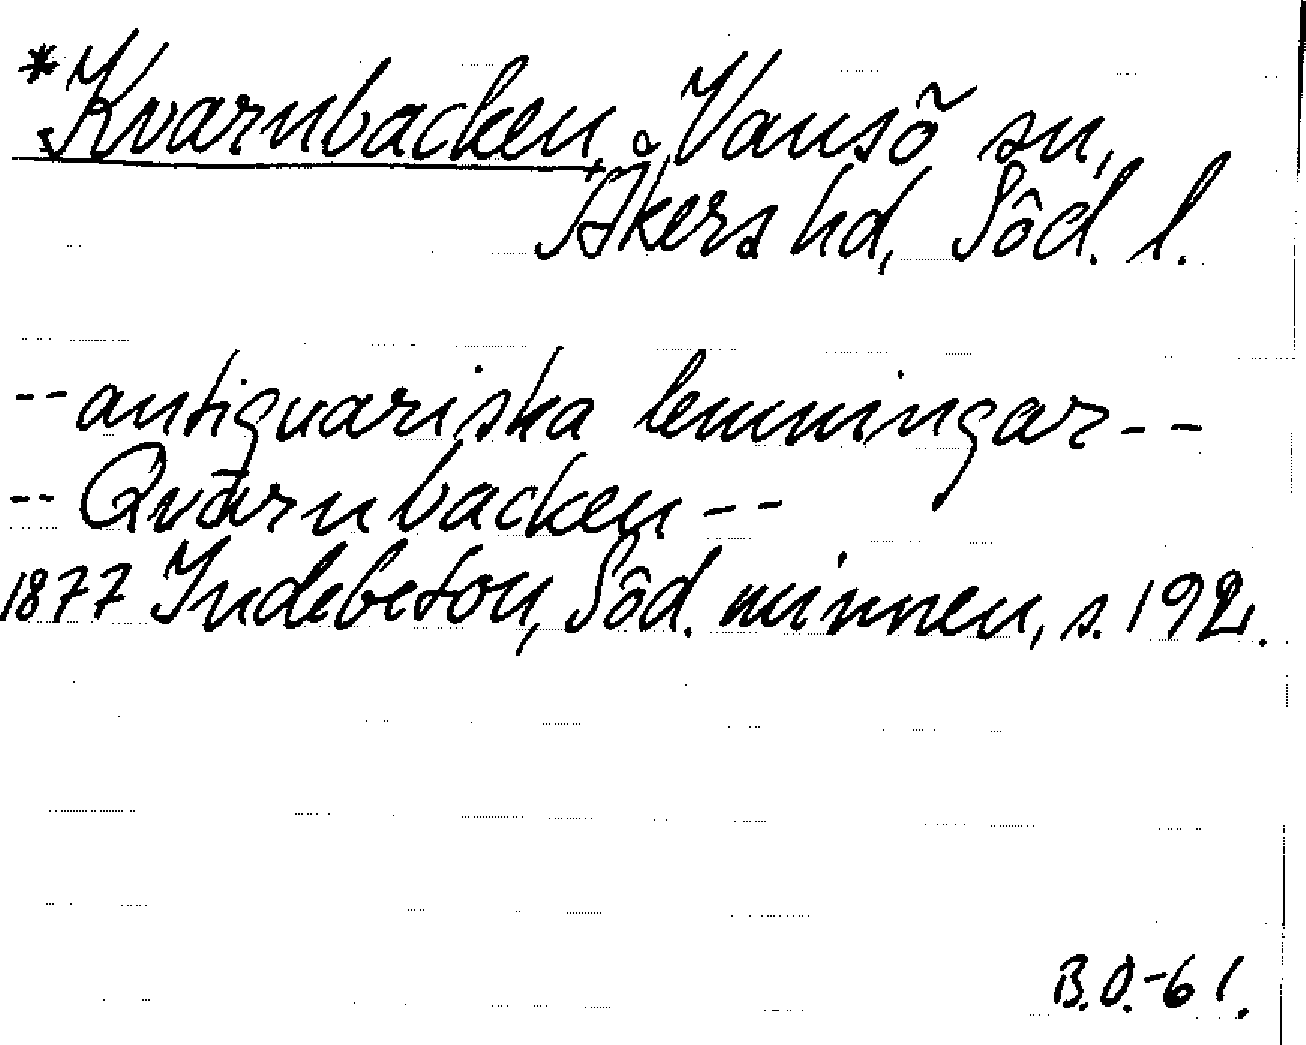 *Kvarnbacken, Vansö sn,
Åkers hd, Söd. l.
-- antiquariska lemningar --
-- Qvarnbacken --
1877 Indebetou, Söd. minnen, s. 192.
B.O.-61.